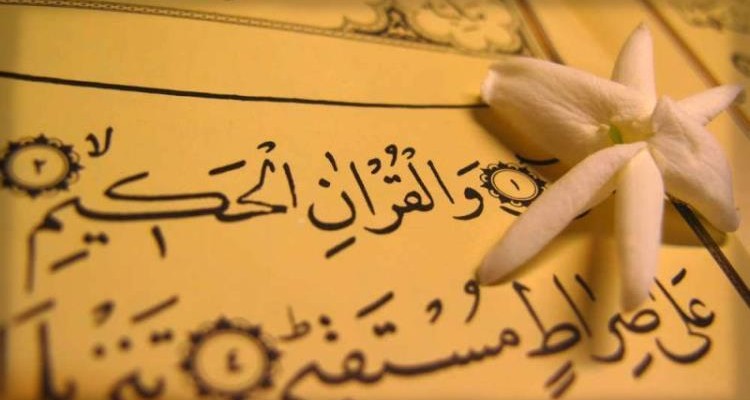 ١ وَالْقُرْاٰنِ الْحَكِيْمِ ۙ ٢
عَلٰى صِرَاطٍ مُّسْتَقِيْمٍ ؕ ٤ تَنْزِيْلَ